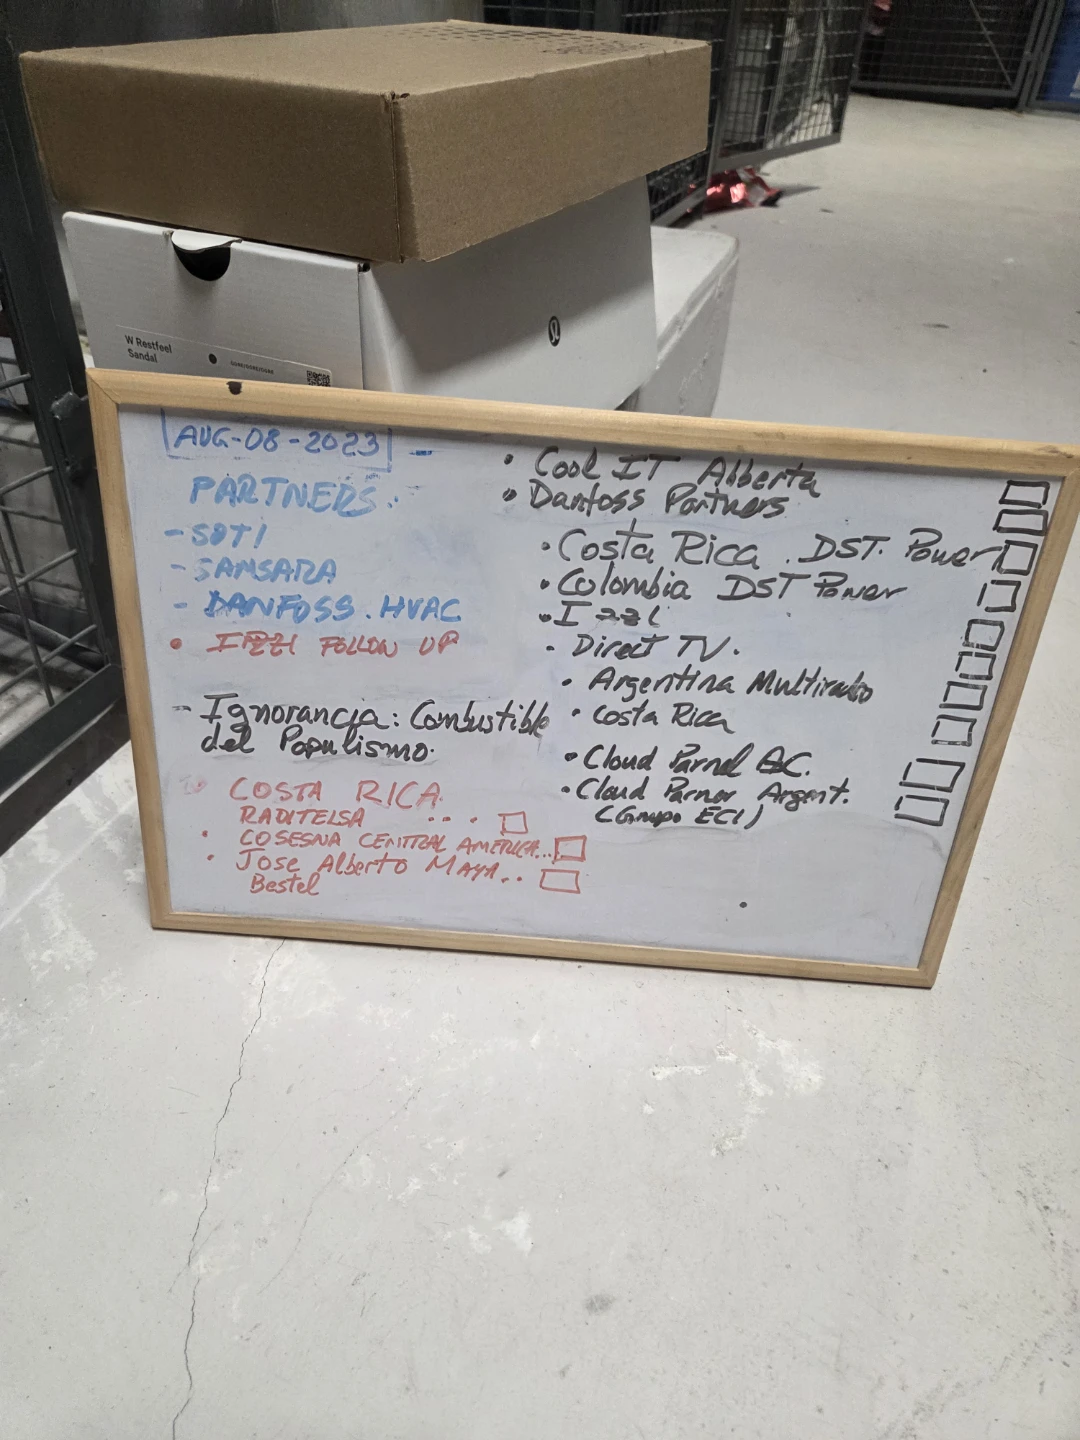 W Restfeel
Sandal
AUG-08-2023
PARTNERS:
- SOTI
- SAMSARA
- DANFOSS. HVAC
• IZZI FOLLOW UP
- Ignorancia: Combustible
del Populismo.
COSTA RICA
RADITELSA ....
• COSESNA CENTRAL AMERICA...
• Jose Alberto MAYA..
Bestel
• Cool IT Alberta
• Danfoss Partners
• Costa Rica . DST. Power
• Colombia DST Power
• Izzi
• Direct TV.
• Argentina Multiradio
• Costa Rica
• Cloud Parnel
• Cloud Parner Argent.
(Grupo ECI)